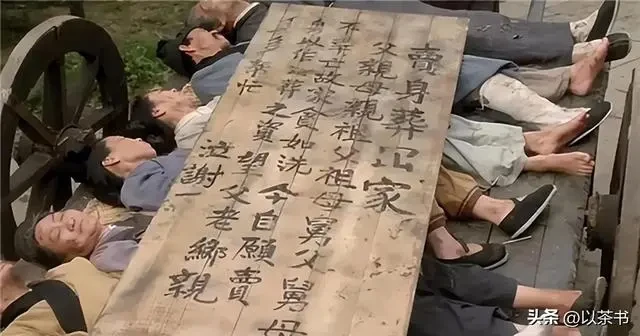 賣身葬全家
父親母親祖父祖母舅父舅母
不幸亡故家貧如洗今自願賣
身作葬之資望父老鄉親
多多幫忙泣謝
头条 @以茶书